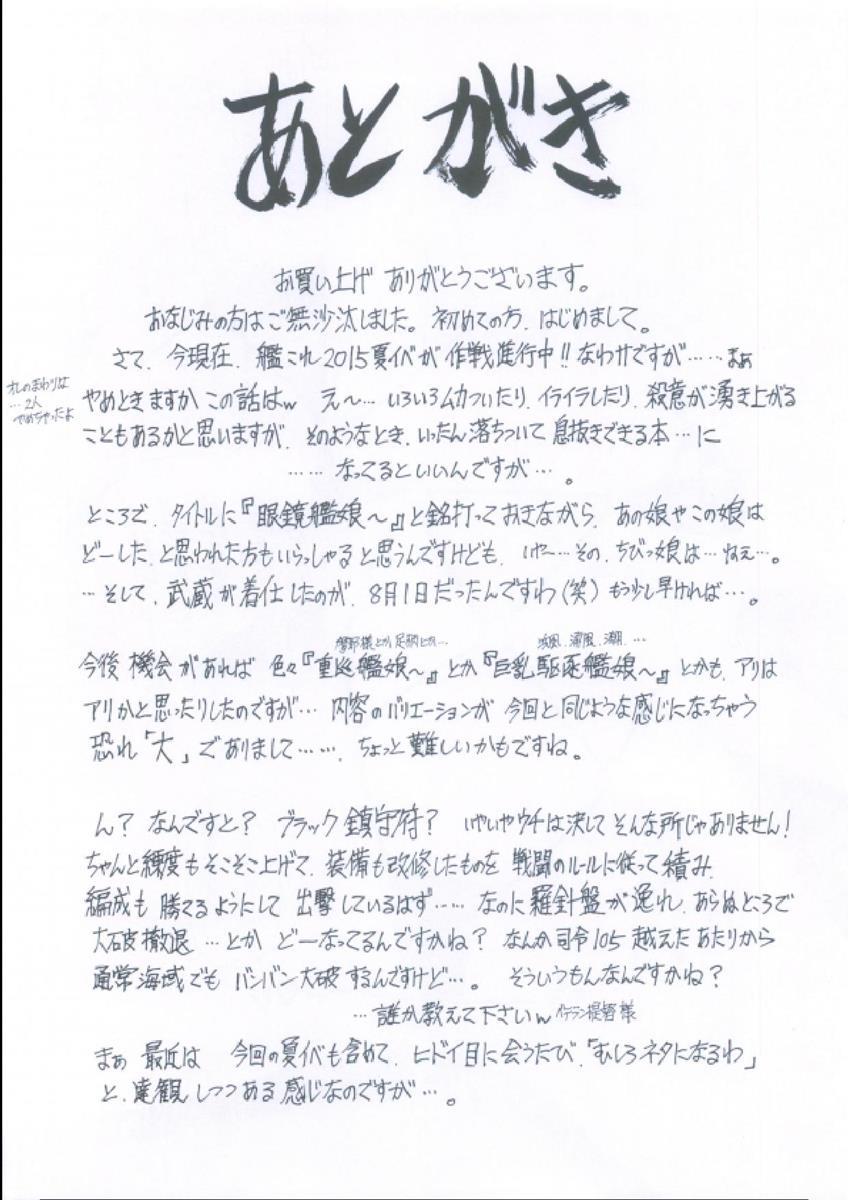 あとがき
お買い上げ ありがとうございます。
おなじみの方はご無沙汰しました。初めての方、はじめまして。
さて、今現在、艦これ2015夏イベが作戦進行中!! なわけですが……まぁ
オレのまわりは
…2人
やめちゃったよ
やめときますか この話はw え～… いろいろムカついたり、イライラしたり、殺意が湧き上がる
こともあるかと思いますが、そのようなとき、いったん落ちついて 息抜きできる本…に
…… なってるといいんですが…。
ところで、タイトルに『眼鏡艦娘～』と銘打っておきながら、あの娘やこの娘は
どーした、と思われた方もいらっしゃると思うんですけども、いやー…その、ちびっ娘は…ねぇ…。
…そして、武蔵が着任したのが、8月1日だったんですわ(笑) もう少し早ければ…。
摩耶様とか足柄とか…
浜風、浦風、潮、…
今後 機会があれば 色々『重巡艦娘～』とか『巨乳駆逐艦娘～』とかも、アリは
アリかと思ったりしたのですが… 内容のバリエーションが 今回と同じような感じになっちゃう
恐れ「大」でありまして……、ちょっと難しいかもですね。
ん? なんですと? ブラック鎮守府? いやいやウチは決してそんな所じゃありません!
ちゃんと練度もそこそこ上げて、装備も改修したものを 戦闘のルールに従って積み、
編成も 勝てるようにして 出撃しているはず…… なのに羅針盤が逸れ、あらぬところで
大破撤退 …とか どーなってるんですかね? なんか司令105越えたあたりから
通常海域でも バンバン大破するんですけど…。 そういうもんなんですかね?
…誰か教えて下さいw ベテラン提督様
まぁ 最近は 今回の夏イベも含めて、ヒドイ目に会うたび、「むしろネタになるわ」
と、達観しつつある感じなのですが…。